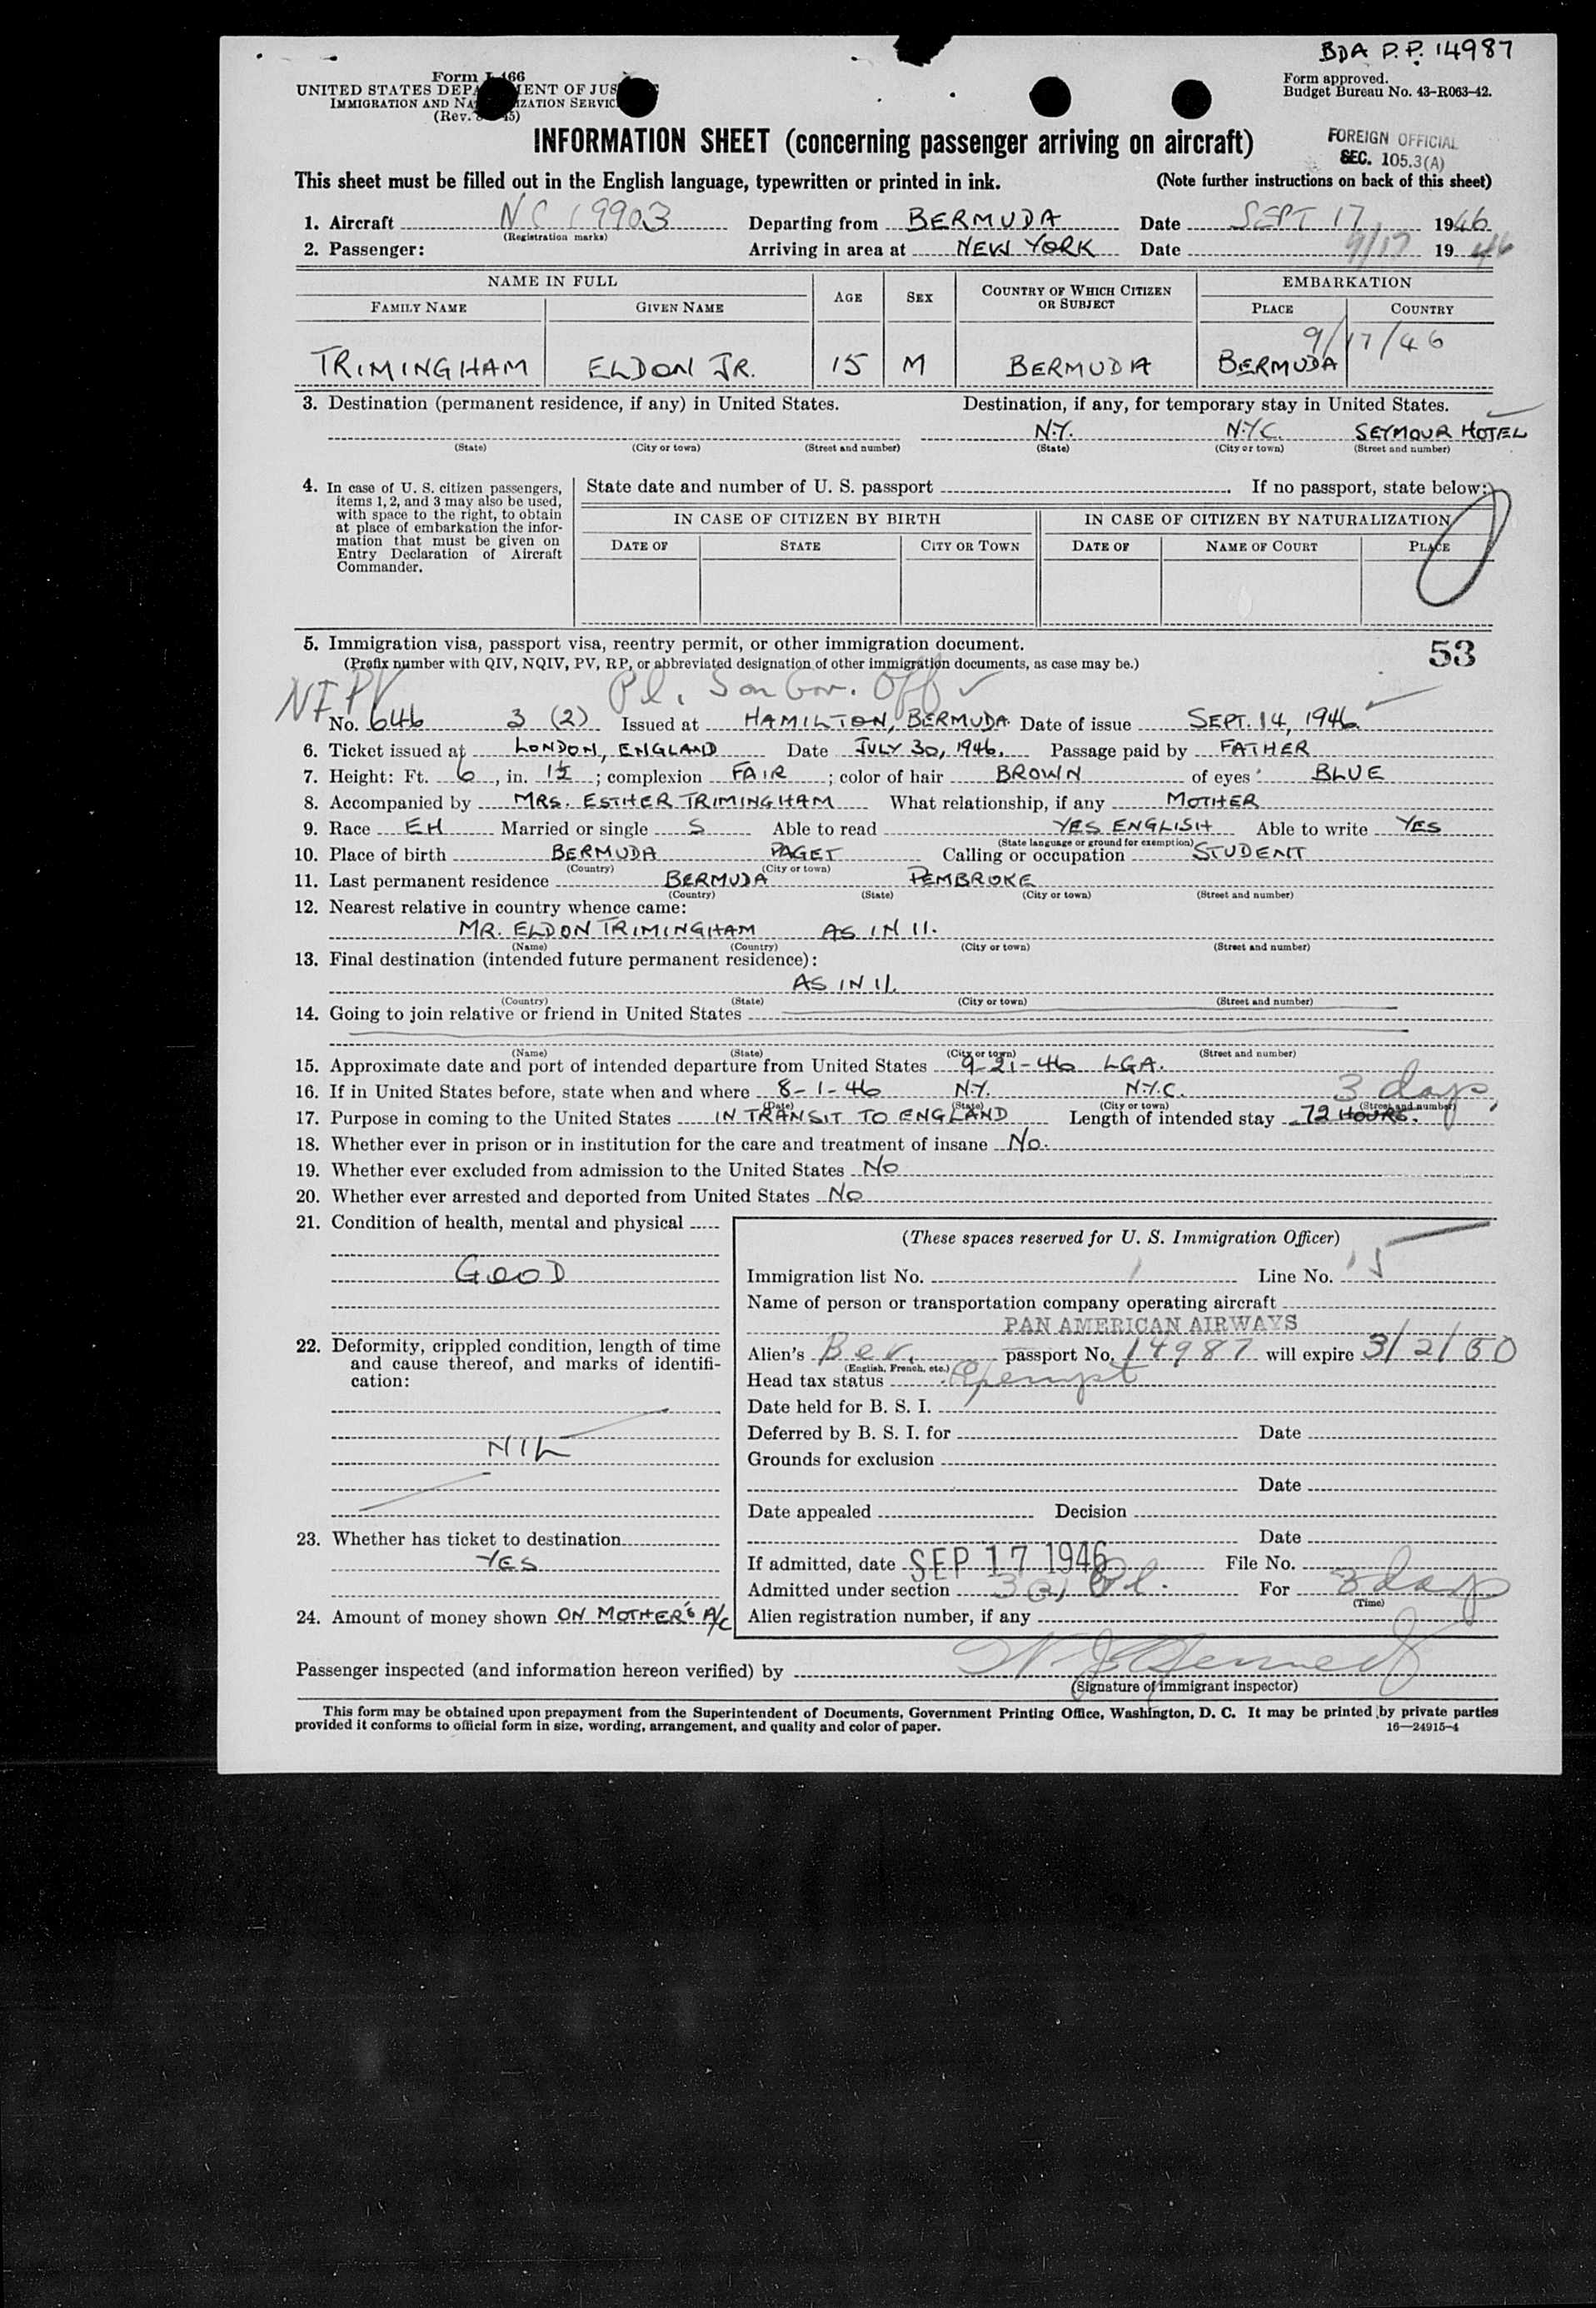 BDA P.P. 14987
Form I-466
UNITED STATES DEPARTMENT OF JUSTICE
IMMIGRATION AND NATURALIZATION SERVICE
(Rev. 45)
Form approved.
Budget Bureau No. 43-R063-42.
INFORMATION SHEET (concerning passenger arriving on aircraft)
FOREIGN OFFICIAL
SEC. 105.3(A)
This sheet must be filled out in the English language, typewritten or printed in ink. (Note further instructions on back of this sheet)
1. Aircraft NC 19903 Departing from BERMUDA Date SEPT 17, 1946
(Registration marks)
2. Passenger: Arriving in area at NEW YORK Date 9/17 1946
NAME IN FULL AGE SEX COUNTRY OF WHICH CITIZEN OR SUBJECT EMBARKATION
FAMILY NAME GIVEN NAME PLACE COUNTRY
9/17/46
TRIMINGHAM ELDON JR. 15 M BERMUDA BERMUDA
3. Destination (permanent residence, if any) in United States. Destination, if any, for temporary stay in United States.
N.Y. N.Y.C. SEYMOUR HOTEL
(State) (City or town) (Street and number) (State) (City or town) (Street and number)
4. In case of U. S. citizen passengers, items 1, 2, and 3 may also be used, with space to the right, to obtain at place of embarkation the information that must be given on Entry Declaration of Aircraft Commander.
State date and number of U. S. passport . If no passport, state below:
IN CASE OF CITIZEN BY BIRTH IN CASE OF CITIZEN BY NATURALIZATION
DATE OF STATE CITY OR TOWN DATE OF NAME OF COURT PLACE
5. Immigration visa, passport visa, reentry permit, or other immigration document.
53
(Prefix number with QIV, NQIV, PV, RP, or abbreviated designation of other immigration documents, as case may be.)
NIPV Pl. Son Gov. Off
No. 646 3 (2) Issued at HAMILTON, BERMUDA Date of issue SEPT. 14, 1946
6. Ticket issued at LONDON, ENGLAND Date JULY 30, 1946. Passage paid by FATHER
7. Height: Ft. 6, in. 1½; complexion FAIR; color of hair BROWN of eyes BLUE
8. Accompanied by MRS. ESTHER TRIMINGHAM What relationship, if any MOTHER
9. Race EH Married or single S Able to read YES ENGLISH Able to write YES
(State language or ground for exemption)
10. Place of birth BERMUDA PAGET Calling or occupation STUDENT
(Country) (City or town)
11. Last permanent residence BERMUDA PEMBROKE
(Country) (State) (City or town) (Street and number)
12. Nearest relative in country whence came:
MR. ELDON TRIMINGHAM AS IN 11.
(Name) (Country) (City or town) (Street and number)
13. Final destination (intended future permanent residence):
AS IN 11.
(Country) (State) (City or town) (Street and number)
14. Going to join relative or friend in United States
(Name) (State) (City or town) (Street and number)
15. Approximate date and port of intended departure from United States 9-21-46 LGA.
16. If in United States before, state when and where 8-1-46 N.Y. N.Y.C. 3 days
(Date) (State) (City or town) (Street and number)
17. Purpose in coming to the United States IN TRANSIT TO ENGLAND Length of intended stay 72 HOURS.
18. Whether ever in prison or in institution for the care and treatment of insane No.
19. Whether ever excluded from admission to the United States No
20. Whether ever arrested and deported from United States No
21. Condition of health, mental and physical
GOOD
22. Deformity, crippled condition, length of time and cause thereof, and marks of identification:
NIL
23. Whether has ticket to destination
YES
24. Amount of money shown ON MOTHER'S A/C
(These spaces reserved for U. S. Immigration Officer)
Immigration list No. 1 Line No. 5
Name of person or transportation company operating aircraft
PAN AMERICAN AIRWAYS
Alien's Ber. passport No. 14987 will expire 3/2/50
(English, French, etc.)
Head tax status Exempt
Date held for B. S. I.
Deferred by B. S. I. for Date
Grounds for exclusion
Date
Date appealed Decision
Date
If admitted, date SEP 17 1946 File No.
Admitted under section 3(2) Pl. For 3 days
(Time)
Alien registration number, if any
Passenger inspected (and information hereon verified) by
(Signature of immigrant inspector)
This form may be obtained upon prepayment from the Superintendent of Documents, Government Printing Office, Washington, D. C. It may be printed by private parties
provided it conforms to official form in size, wording, arrangement, and quality and color of paper. 16—24915-4